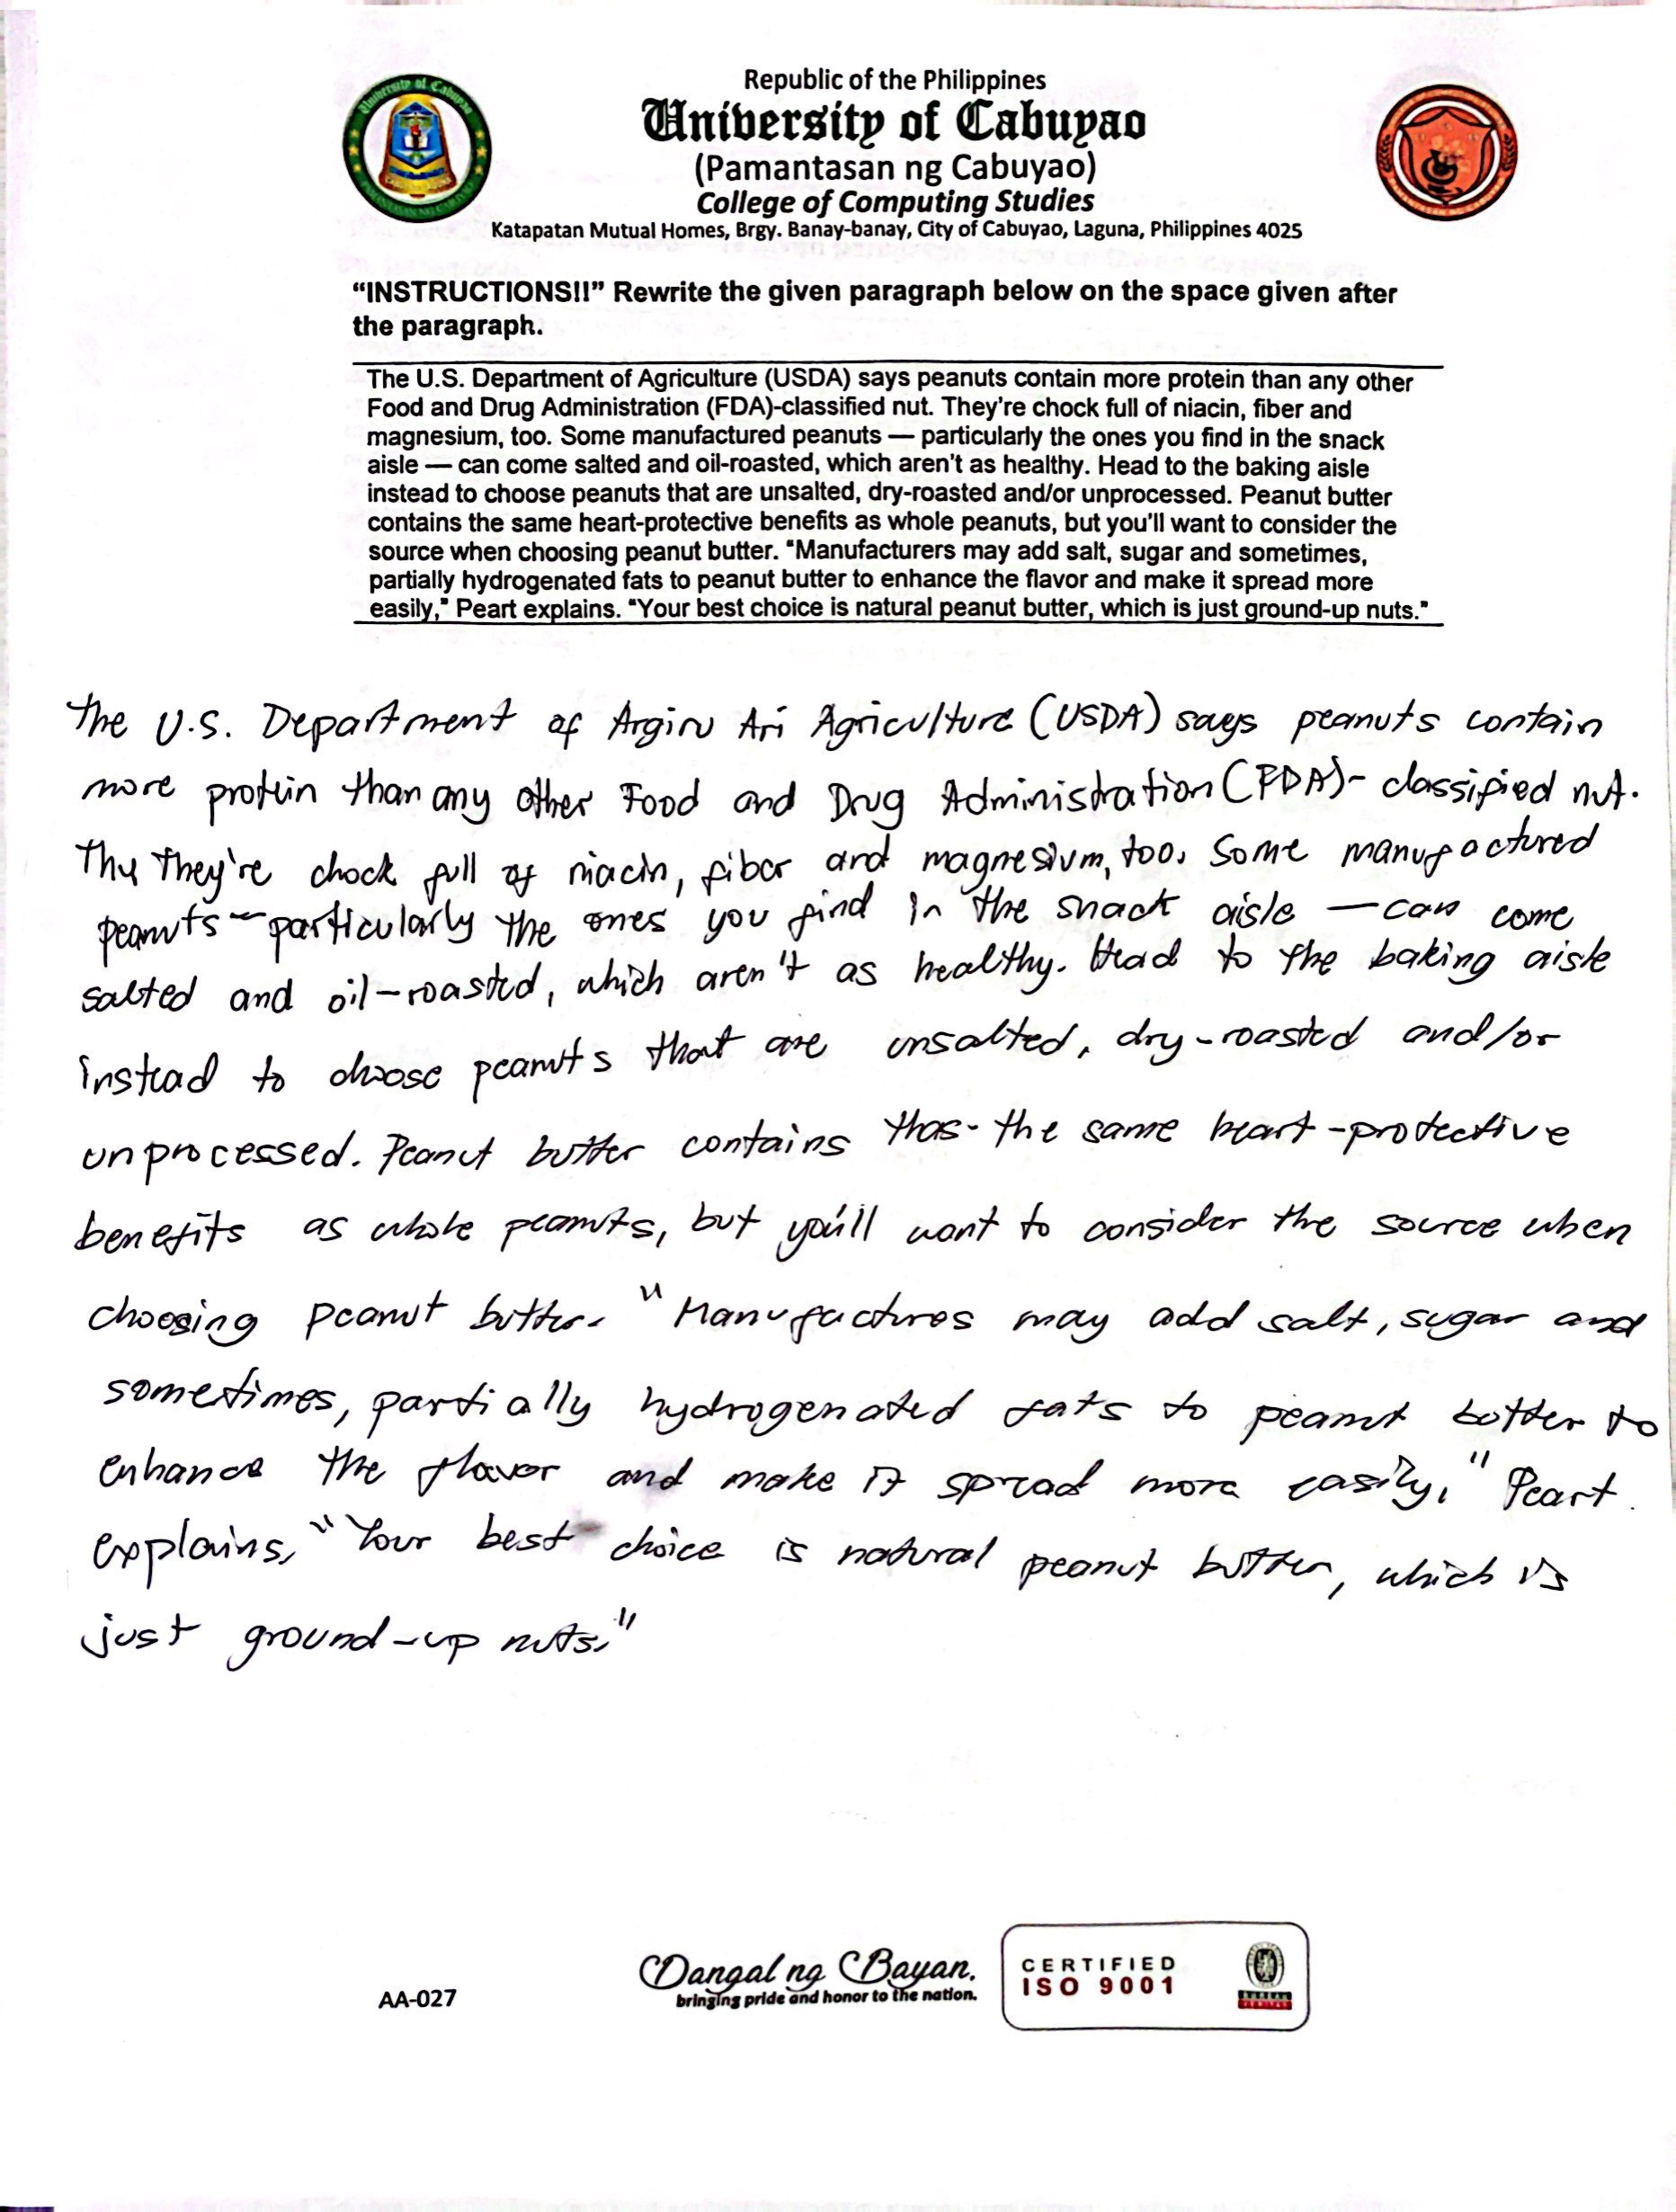 Republic of the Philippines
University of Cabuyao
(Pamantasan ng Cabuyao)
College of Computing Studies
Katapatan Mutual Homes, Brgy. Banay-banay, City of Cabuyao, Laguna, Philippines 4025
“INSTRUCTIONS!!” Rewrite the given paragraph below on the space given after
the paragraph.
The U.S. Department of Agriculture (USDA) says peanuts contain more protein than any other
Food and Drug Administration (FDA)-classified nut. They're chock full of niacin, fiber and
magnesium, too. Some manufactured peanuts — particularly the ones you find in the snack
aisle — can come salted and oil-roasted, which aren't as healthy. Head to the baking aisle
instead to choose peanuts that are unsalted, dry-roasted and/or unprocessed. Peanut butter
contains the same heart-protective benefits as whole peanuts, but you'll want to consider the
source when choosing peanut butter. “Manufacturers may add salt, sugar and sometimes,
partially hydrogenated fats to peanut butter to enhance the flavor and make it spread more
easily,” Peart explains. “Your best choice is natural peanut butter, which is just ground-up nuts.”
The U.S. Department of Argiru Ari Agriculture (USDA) says peanuts contain
more protein than any other Food and Drug Administration (FDA)- classified nut.
Thy They're chock full of niacin, fiber and magnesium, too. Some manufactured
peanuts — particularly the ones you find in the snack aisle — can come
salted and oil-roasted, which aren't as healthy. Head to the baking aisle
instead to choose peanuts that are unsalted, dry-roasted and/or
unprocessed. Peanut butter contains thas- the same heart-protective
benefits as whole peanuts, but you'll want to consider the source when
choosing peanut butter. "Manufactures may add salt, sugar and
sometimes, partially hydrogenated fats to peanut butter to
enhance the flavor and make it spread more easily," Peart
explains, "Your best choice is natural peanut butter, which is
just ground-up nuts."
AA-027
Dangal ng Bayan.
bringing pride and honor to the nation.
CERTIFIED
ISO 9001